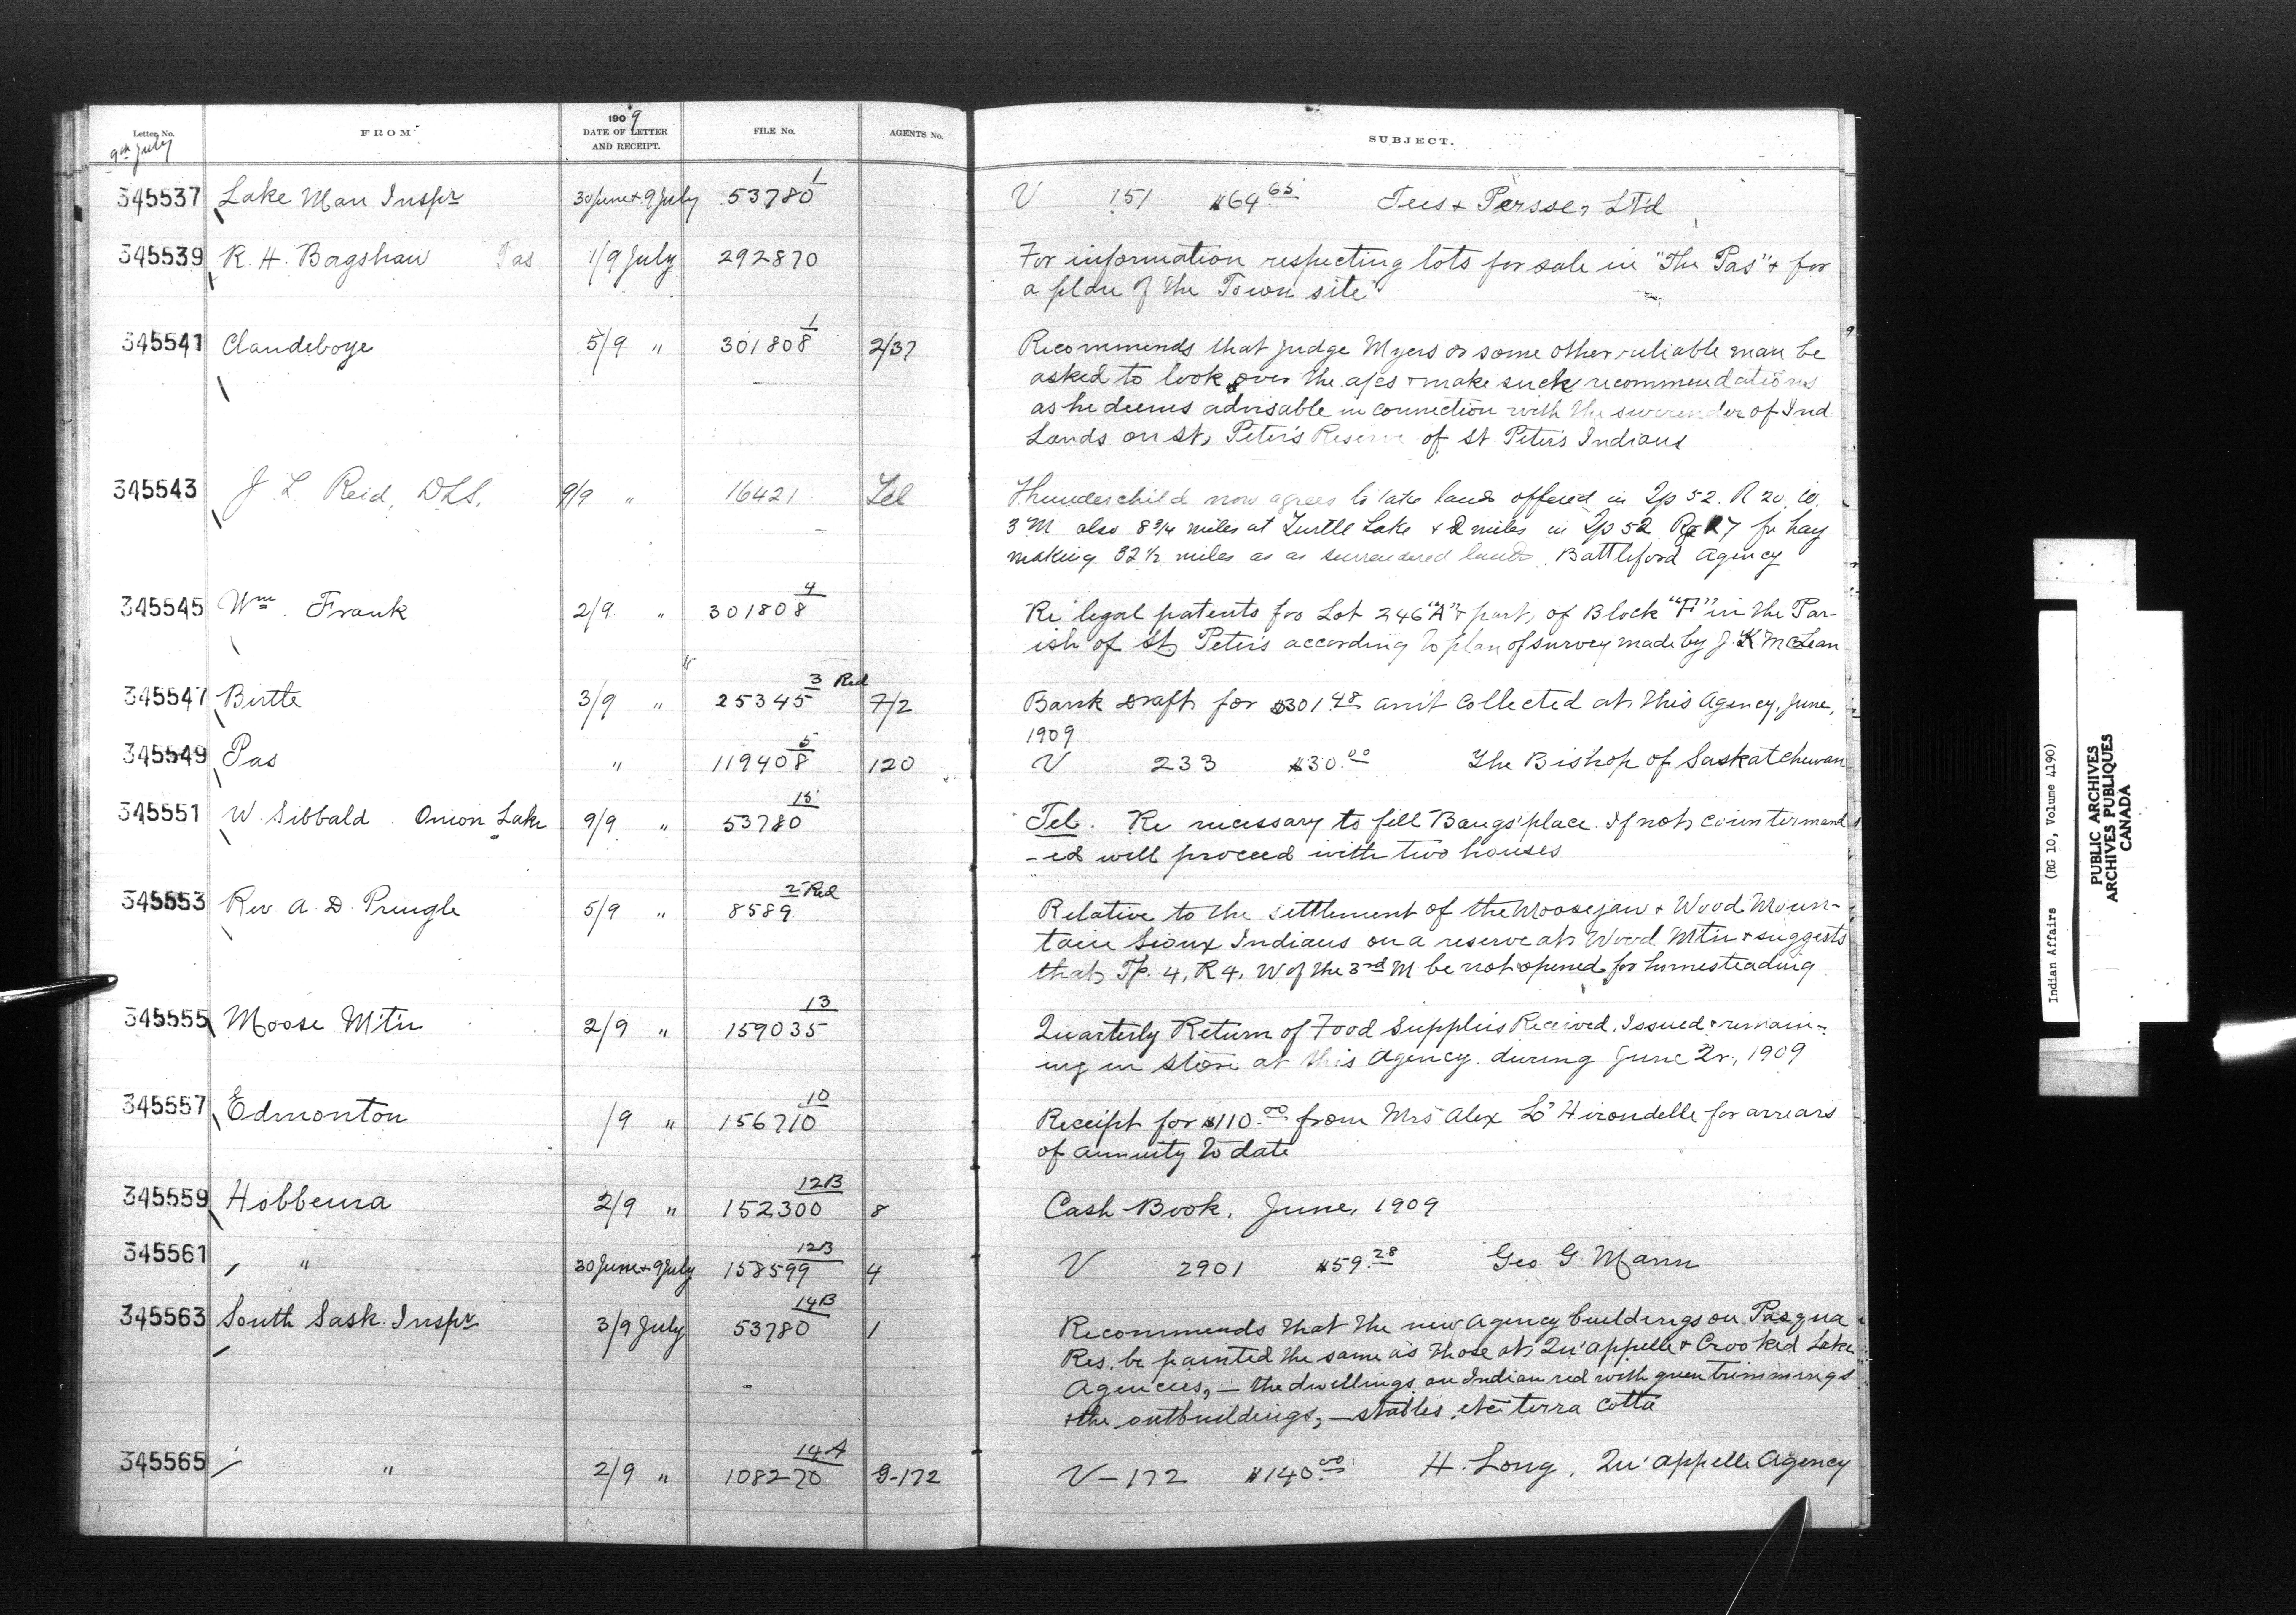 Letter No. FROM 1909 DATE OF LETTER AND RECEIPT. FILE No. AGENTS No. SUBJECT.
9th July
345537 Lake Man Inspr 30 June + 9 July 53780 1 V 151 $64.65 Tees + Persse, Ltd
345539 R. H. Bagshaw Pas 1/9 July 292870 For information respecting lots for sale in "The Pas" + for
a plan of the Town site
345541 Clandeboye 5/9 " 301808 1 2/37 Recommends that Judge Myers or some other reliable man be
asked to look over the a/cs + make such recommendations
as he deems advisable in connection with the surrender of Ind
Lands on St. Peter's Reserve of St Peter's Indians
345543 J. L. Reid, DLS. 9/9 " 16421 Tel Thunderchild now agrees to take lands offered in Tp 52. R 20, W.
3 M also 8 3/4 miles at Turtle Lake + 2 miles in Tp 52 Rg 27 for hay
making 32 1/2 miles as as surrendered lands. Battleford Agency
345545 Wm. Frank 2/9 " 301808 4 Re legal patents for Lot 246 "A" + part of Block "F" in the Par-
ish of St Peter's according to plan of survey made by J. K. McLean
"
345547 Birtle 3/9 " 25345 3 Red 7/2 Bank Draft for $301.48 am't collected at this Agency, June,
1909
345549 Pas " 119408 5 120 V 233 $30.00 The Bishop of Saskatchewan
345551 W. Sibbald Onion Lake 9/9 " 53780 15 Tel. Re necessary to fill Bangs' place. If not countermand
-ed will proceed with two houses
345553 Rev A. D. Pringle 5/9 " 8589 2 Red Relative to the settlement of the Moosejaw + Wood Moun-
tain Sioux Indians on a reserve at Wood Mtn + suggests
that Tp. 4, R 4, W of the 3rd M be not opened for homesteading
345555 Moose Mtn 2/9 " 159035 13 Quarterly Return of Food Supplies Received, Issued + remain-
ing in store at this Agency during June Qr, 1909
345557 Edmonton /9 " 156710 10 Receipt for $110.00 from Mrs Alex L'Hirondelle for arrears
of annuity to date
345559 Hobbema 2/9 " 152300 12B 8 Cash Book, June, 1909
345561 " 30 June + 9 July 158599 12B 4 V 2901 $59.28 Geo. G. Mann
345563 South Sask. Inspr 3/9 July 53780 14B 1 Recommends that the new Agency buildings on Pasqua
Res. be painted the same as those at Qu'appelle + Crooked Lake
Agencies, — the dwellings an Indian red with green trimmings
+ the outbuildings, — stables, etc terra cotta
345565 " 2/9 " 108270 14A 9-172 V-172 $140.00 H. Long, Qu'appelle Agency
Indian Affairs (RG 10, Volume 4190)
PUBLIC ARCHIVES
ARCHIVES PUBLIQUES
CANADA